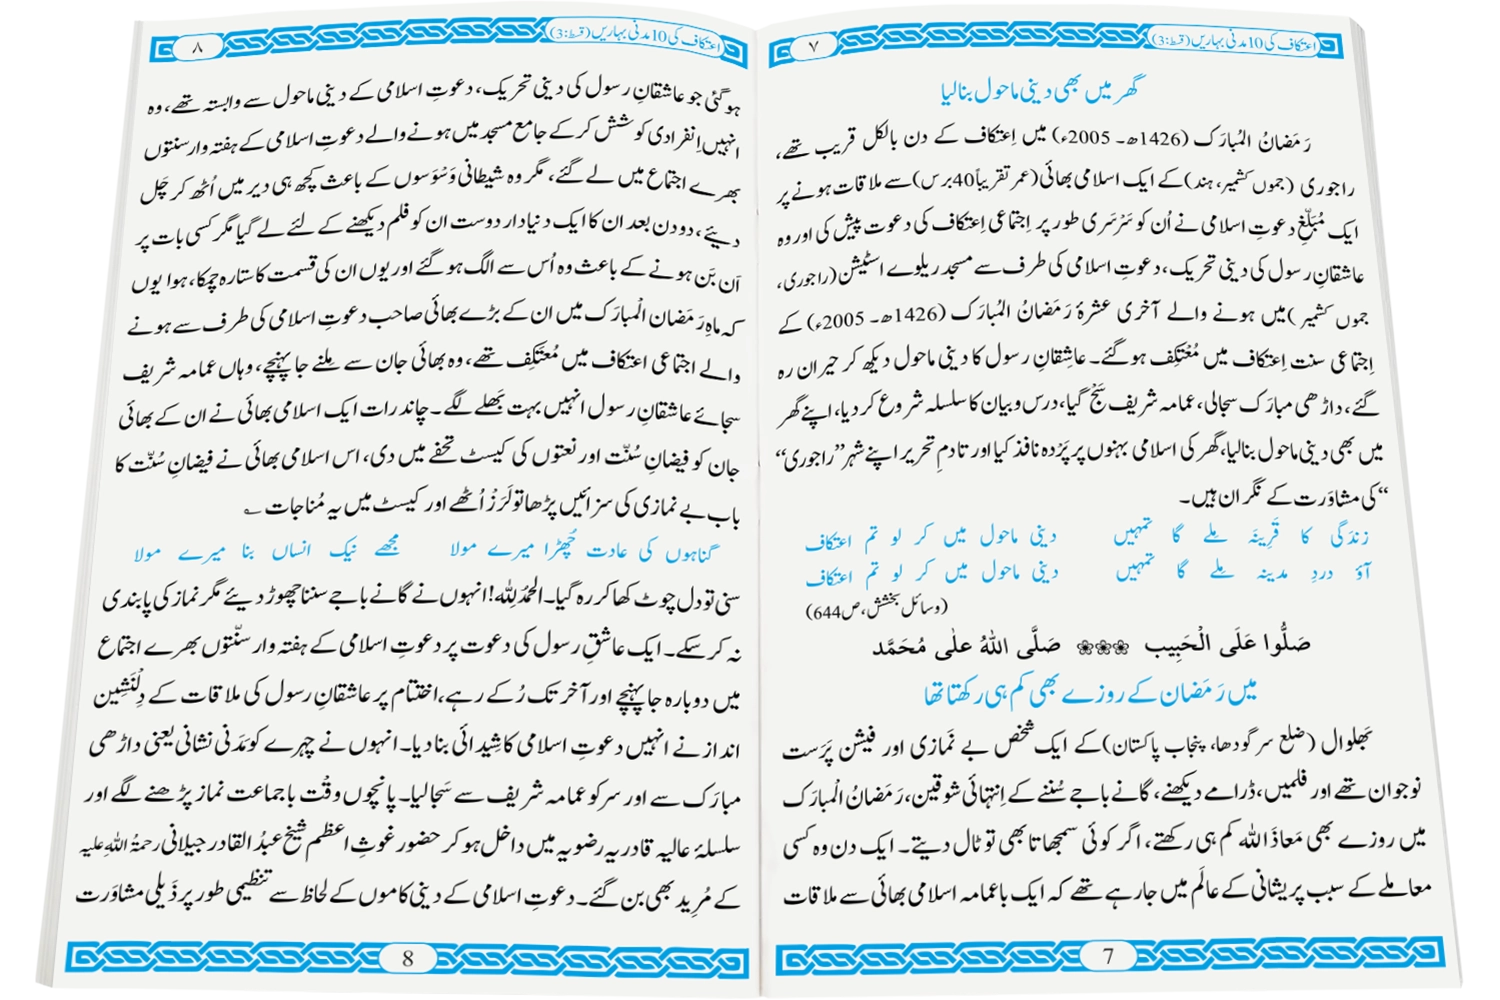 اعتکاف کی 10 مدنی بہاریں (قسط:3)
۷
گھر میں بھی دینی ماحول بنالیا
رَمَضانُ المُبارَک (1426ھ۔ 2005ء) میں اِعتکاف کے دن بالکل قریب تھے،
راجوری (جموں کشمیر، ہند) کے ایک اسلامی بھائی (عمر تقریباً 40 برس) سے ملاقات ہونے پر
ایک مُبَلِّغِ دعوتِ اسلامی نے اُن کو سَرْسَری طور پر اِجتماعی اِعتکاف کی دعوت پیش کی اور وہ
عاشقانِ رسول کی دینی تحریک، دعوتِ اسلامی کی طرف سے مسجد ریلوے اسٹیشن (راجوری،
جموں کشمیر) میں ہونے والے آخری عشرۂ رَمَضانُ المُبارَک (1426ھ۔ 2005ء) کے
اِجتماعی سنت اِعتکاف میں مُعْتَکِف ہوگئے۔ عاشِقانِ رسول کا دینی ماحول دیکھ کر حیران رہ
گئے، داڑھی مبارَک سجالی، عمامہ شریف سَج گیا، درس و بیان کا سلسلہ شروع کردیا، اپنے گھر
میں بھی دینی ماحول بنالیا، گھر کی اسلامی بہنوں پر پَرْدہ نافذ کیا اور تادمِ تحریر اپنے شہر ”راجوری“
“ کی مشاوَرت کے نگران ہیں۔
زندگی کا قَرِینَہ مِلے گا تمہیں دینی ماحول میں کر لو تم اعتکاف
آؤ دردِ مدینہ مِلے گا تمہیں دینی ماحول میں کر لو تم اعتکاف
(وسائلِ بخشش، ص644)
صَلُّوا عَلَی الْحَبِیب ❀❀❀ صَلَّی اللهُ عَلٰی مُحَمَّد
میں رَمَضان کے روزے بھی کم ہی رکھتا تھا
بَھلوال (ضلع سرگودھا، پنجاب پاکستان) کے ایک شخص بے نَمازی اور فیشن پَرَست
نوجوان تھے اور فلمیں، ڈرامے دیکھنے، گانے باجے سُننے کے اِنتہائی شوقین، رَمَضانُ الْمبارَک
میں روزے بھی مَعاذَ اللہ کم ہی رکھتے، اگر کوئی سمجھاتا بھی تو ٹال دیتے۔ ایک دن وہ کسی
معاملے کے سبب پریشانی کے عالَم میں جارہے تھے کہ ایک باعمامہ اسلامی بھائی سے ملاقات
7
اعتکاف کی 10 مدنی بہاریں (قسط:3)
۸
ہوگئی جو عاشقانِ رسول کی دینی تحریک، دعوتِ اسلامی کے دینی ماحول سے وابستہ تھے، وہ
انہیں اِنفرادی کوشش کرکے جامع مسجد میں ہونے والے دعوتِ اسلامی کے ہفتہ وار سنتوں
بھرے اجتماع میں لے گئے، مگر وہ شیطانی وَسْوَسوں کے باعث کچھ ہی دیر میں اُٹھ کر چَل
دیئے، دو دن بعد ان کا ایک دنیادار دوست ان کو فلم دیکھنے کے لئے لے گیا مگر کسی بات پر
اَن بَن ہونے کے باعث وہ اُس سے الگ ہوگئے اور یوں ان کی قسمت کا ستارہ چمکا، ہوا یوں
کہ ماہِ رَمَضان الْمبارَک میں ان کے بڑے بھائی صاحب دعوتِ اسلامی کی طرف سے ہونے
والے اجتماعی اعتکاف میں مُعْتَکِف تھے، وہ بھائی جان سے مِلنے جا پہنچے، وہاں عمامہ شریف
سجائے عاشقانِ رسول انہیں بہت بَھلے لگے۔ چاند رات ایک اسلامی بھائی نے ان کے بھائی
جان کو فیضانِ سُنّت اور نعتوں کی کیسٹ تحفے میں دی، اس اسلامی بھائی نے فیضانِ سُنّت کا
باب بے نمازی کی سزائیں پڑھا تو لَرَزْ اُٹھے اور کیسٹ میں یہ مُناجات ؎
گناہوں کی عادت چُھڑا میرے مولا مجھے نیک انساں بنا میرے مولا
سنی تو دل چوٹ کھا کر رہ گیا۔ الحَمْدُلِلّٰہ! انہوں نے گانے باجے سننا چھوڑ دیئے مگر نماز کی پابندی
نہ کرسکے۔ ایک عاشقِ رسول کی دعوت پر دعوتِ اسلامی کے ہفتہ وار سنّتوں بھرے اجتماع
میں دوبارہ جاپہنچے اور آخر تک رُکے رہے، اختتام پر عاشقانِ رسول کی ملاقات کے دِلْنَشِین
انداز نے انہیں دعوتِ اسلامی کا شیدائی بنادیا۔ انہوں نے چہرے کو مَدَنی نشانی یعنی داڑھی
مبارَک سے اور سر کو عمامہ شریف سے سَجالیا۔ پانچوں وقْت باجماعت نماز پڑھنے لگے اور
سلسلۂ عالیہ قادریہ رضویہ میں داخل ہوکر حضور غوثِ اعظم شیخ عبدُ القادر جیلانی رحمۃُ اللہِ علیہ
کے مُرید بھی بن گئے۔ دعوتِ اسلامی کے دینی کاموں کے لحاظ سے تنظیمی طور پر ذَیلی مشاوَرت
8